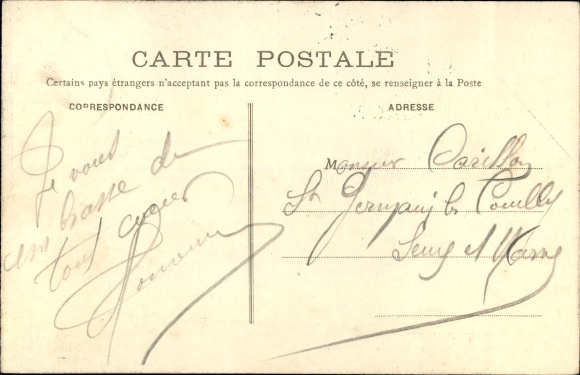 CARTE POSTALE
Certains pays étrangers n'acceptant pas la correspondance de ce côté, se renseigner à la Poste
CORRESPONDANCE
Je vous
embrasse de
tout cœur
ADRESSE
Monsieur
St Germain les Couilly
Seine et Marne